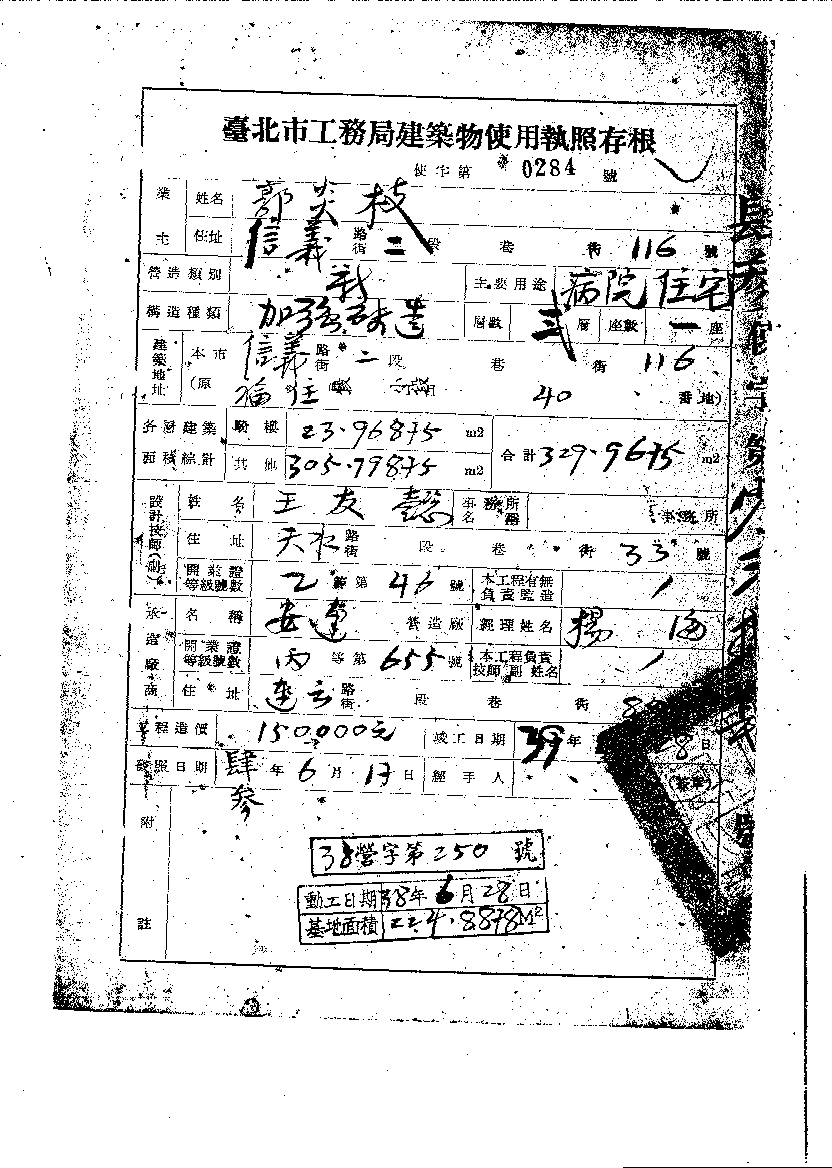 臺北市工務局建築物使用執照存根
使字第 0284 號
業主 姓名 郭炎枝
住址 信義 路街 二 段 巷 街 116 號
營造類別 新 主要用途 病院住宅
構造種類 加強磚造 層數 三 層 座數 一 座
建築地址 本市 信義 路街 二 段 巷 街 116
(原 福住 40 番地)
各層建築面積綜計 騎樓 23.96875 m2 合計 329.9675 m2
其他 305.99875 m2
設計技師(副) 姓名 王友 事務所名稱 事務所
住址 天水 路街 段 巷 街 33 號
開業證等級號數 乙 等第 46 號 本工程有無負責監造
承造廠商 名稱 安達 營造廠 經理姓名 楊海
開業證等級號數 丙 等第 655 號 本工程負責技師副姓名
住址 連云 路街 段 巷 街
工程造價 150,000元 竣工日期 39 年 8日
發照日期 肆參 年 6 月 17 日 經手人
附註
38營字第250號
動工日期38年6月28日
基地面積 224.8878M2